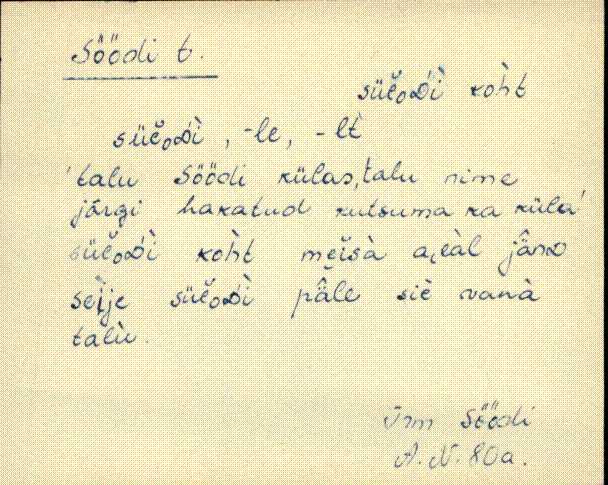 Söödi t.
süĕₒᴅ́ì kòht
süĕₒᴅ́ì, -le, -lt̀
'talu Söödi külas, talu nime
järgi hakatud kutsuma ka küla'
süĕₒᴅ́ì kòht meĭsà aᵢèàl jâ̈nᴅ
seìje süĕₒᴅ́ì pä̂le siè vanà
talù.
Irm Söödi
A. N. 80a.